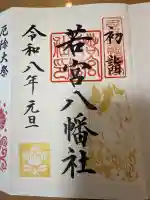 初詣
若宮八幡社
令和八年元旦
厄除大祭